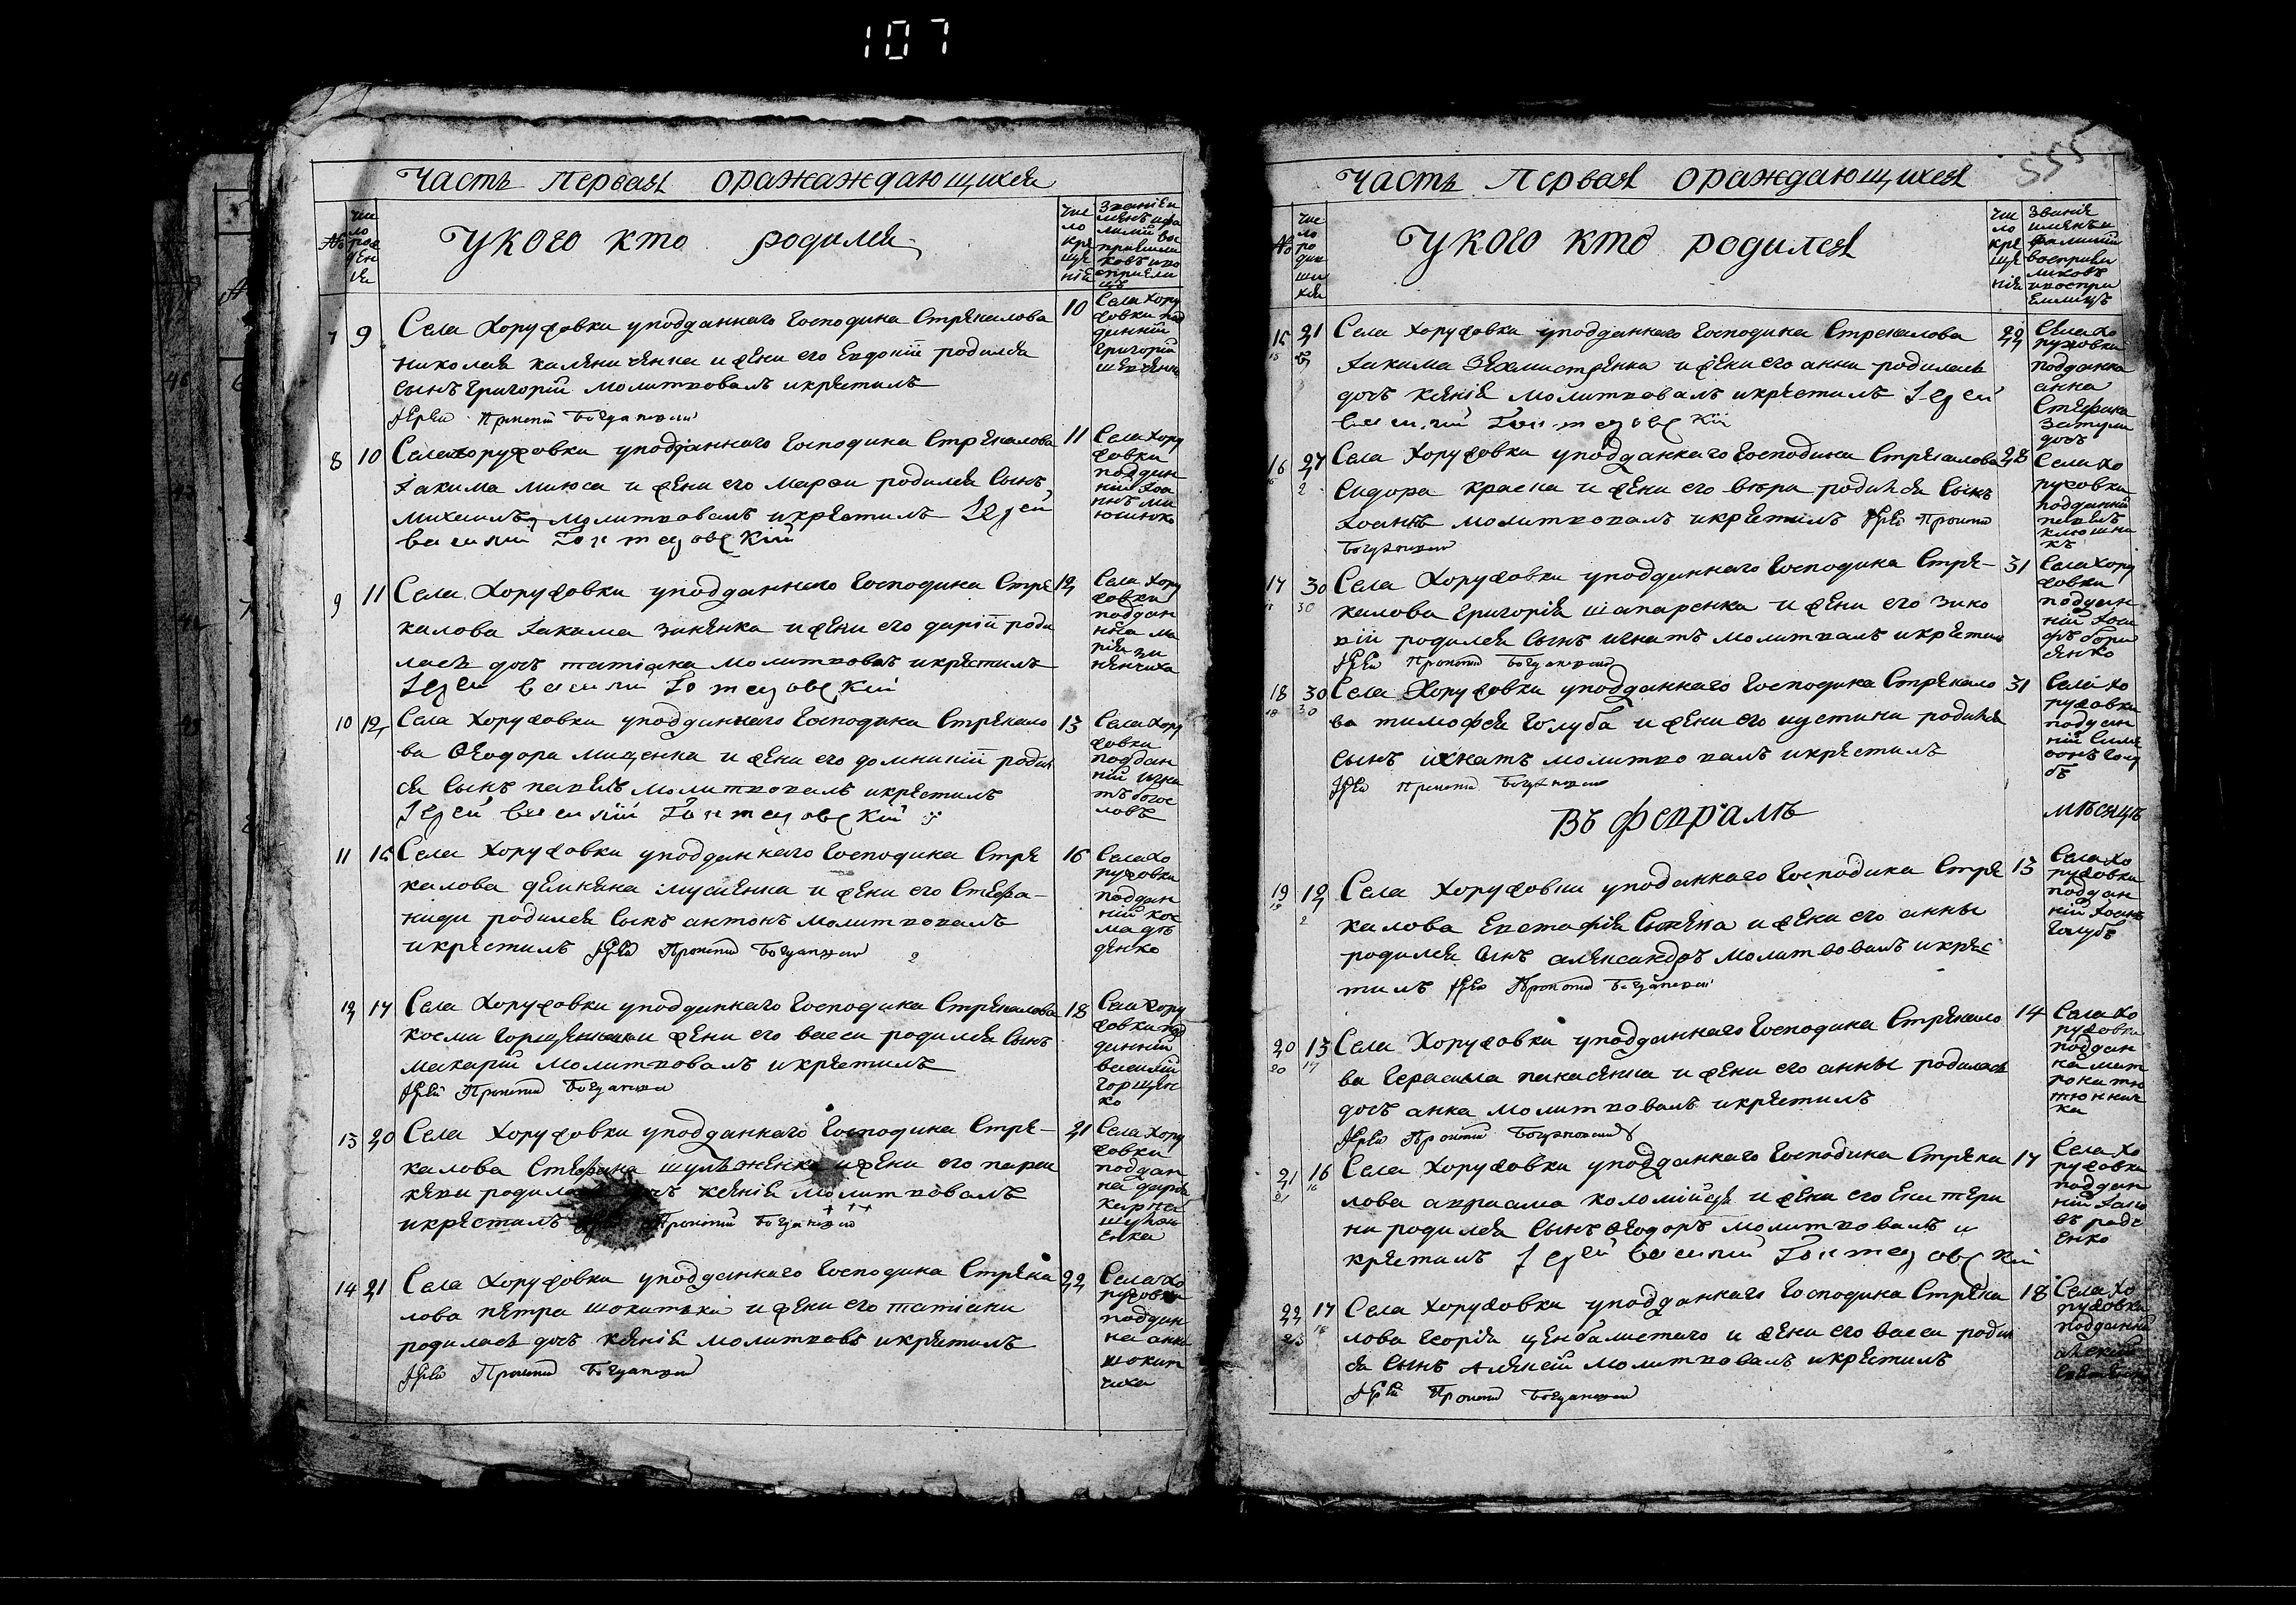 107
Часть первая оражаждающихся
№
Чи
ло
рож
ден
ія
У кого кто родился
Чис
ло
кре
ще
нія
Званіе и
менъ и фа
милий вос
приемни
ковъ и во
сприем
цъ
7 9 Села Хоружовки у подданнаго Господина Стрекалова
Николая калениченка и жени его Евдокіи родился
Сынъ Григорій молитвовалъ и крестилъ
Іерей Прокопій Богдановский
10 Села Хору
жовки под
данний
Григорій
Шевченко
8 10 Села Хоружовки у подданнаго Господина Стрекалова
Іакима миюса и жени его Марфи родился Сынъ
Михаилъ молитвовалъ и крестилъ Іерей
Василий
11 Села Хору
жовки
поддан
ний Іоа
ннъ ми
юсенко
9 11 Села Хоружовки у подданнаго Господина Стре
калова Іакима зинченка и жени его дарії роди
лась дочь татіана молитвовалъ и крестилъ
Іерей Василий
12 Села Хору
жовки
поддан
ная ма
рія зи
ненчиха
10 12 Села Хоружовки у подданнаго Господина Стрекало
ва Ѳеодора мищенка и жени его домникії родил
ся Сынъ павелъ молитвовалъ и крестилъ
Іерей Василій
13 Села Хору
жовки
поддан
ний игна
тъ богос
ловъ
11 15 Села Хоружовки у подданнаго Господина Стре
калова демяна мусиенка и жени его Стефа-
ниди родился Сынъ антонъ молитвовалъ
и крестилъ Іерей Прокопій Богдановский
16 Села Хо
ружовки
поддан
ний кос
ма дъ
денко
12 17 Села Хоружовки у подданнаго Господина Стрекалова
косми Горщенка и жени его васси родился Сынъ
макарій молитвовалъ и крестилъ
Іерей Прокопій Богдановский
18 Села Хору
жовки под
данний
василий
Горщен
ко
13 20 Села Хоружовки у подданнаго Господина Стре-
калова Стефана шулженка и жени его парас
кеви родилась дочь ксенія молитвовалъ
и крестилъ Прокопій Богдановский
21 Села Хору
жовки
поддан
на дарія
кирна
шулж
енка
14 21 Села Хоружовки у подданнаго Господина Стрека
лова петра шокитки и жени его татіани
родилась дочь ксенія молитвовъ и крестилъ
Іерей Прокопій Богдановский
22 Села Хо
ружовки
поддан
на анна
шокит
чиха
555
Часть первая ораждающихся
№
Чис
ло
ро
див
ши
хся
У кого кто родился
Чи
ло
кре
ще
нія
Званія
именъ и
фамилий
восприем
никовъ
и воспри
емницъ
15 21 Села Хоружовки у подданнаго Господина Стрекалова
Іакима и жени его анни родилась
дочь ксенія молитвовалъ и крестилъ Іерей
Василий
22 Села Хо
ружовки
подданна
анна
Стефана
затули
дочь
16 27 Села Хоружовки у подданнаго Господина Стрекалова
Сидора краска и жени его вѣри родился Сынъ
Іоаннъ молитвовалъ и крестилъ Іерей Прокопій
Богдановский
28 Села Хо
ружовки
подданний
павелъ
клюшни
къ
17 30 Села Хоружовки у подданнаго Господина Стре-
калова Григорія шапаренка и жени его зино
вій родился Сынъ игнатъ молитвовалъ и крестилъ
Іерей Прокопій Богдановский
31 Села Хору
жовки
поддан
ний Іоси
фъ бори
сенко
18 30 Села Хоружовки у подданнаго Господина Стрекало
ва тимофея Голуба и жени его иустини родился
Сынъ игнатъ молитвовалъ и крестилъ
Іерей Прокопій Богдановский
31 Села Хо
ружовки
поддан
ний Симе
онъ Голу
бъ
Въ февралѣ
мѣсяцѣ
19 12 Села Хоружовки у поданнаго Господина Стре
калова Евстафія и жени его анны
родился Сынъ александръ молитвовалъ и крес
тилъ Іерей Прокопій Богдановский
13 Села Хо
ружовки
поддан
ний Іоанъ
Голубъ
20 13 Села Хоружовки у подданнаго Господина Стрекало
ва Герасима панасенка и жени его анны родилась
дочь анна молитвовалъ и крестилъ
Іерей Прокопій Богдановский
14 Села Хо
ружовки
поддан
на мат
рона тю
тюнни
ка
21 16 Села Хоружовки у подданнаго Господина Стрека
лова авраама коломійця и жени его Екатери
ни родился Сынъ Ѳеодоръ молитвовалъ и
крестилъ Іерей Василий
17 Села Хо
ружовки
поддан
ний Іако
въ радч
енко
22 17 Села Хоружовки у подданнаго Господина Стрека
лова Георгія цембалистаго и жени его васси родил
ся Сынъ Алексій молитвовалъ и крестилъ
Іерей Прокопій Богдановский
18 Села Хо
ружовки
подданий